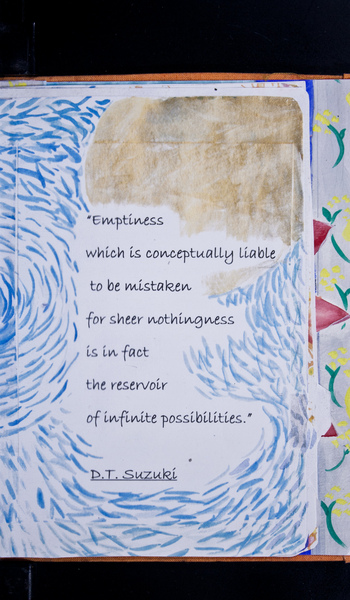 “Emptiness
which is conceptually liable
to be mistaken
for sheer nothingness
is in fact
the reservoir
of infinite possibilities.”
D.T. Suzuki